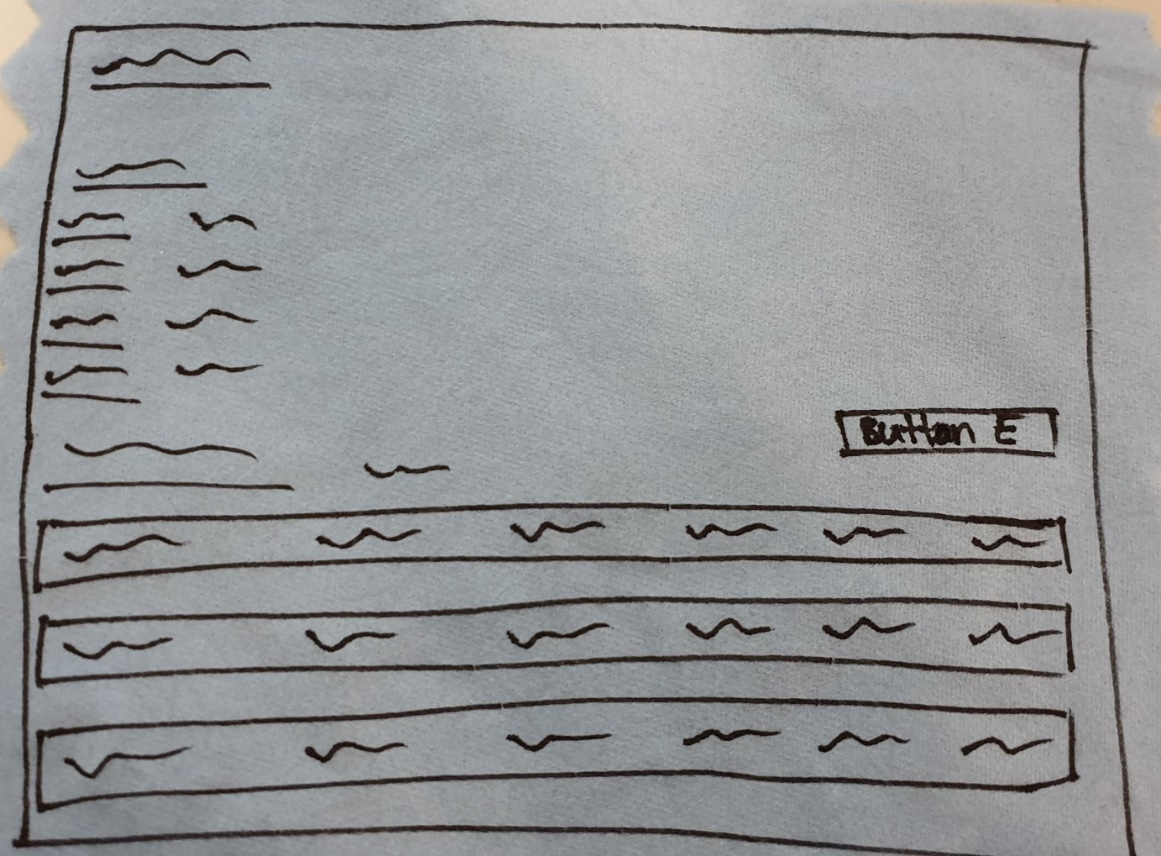 Button E